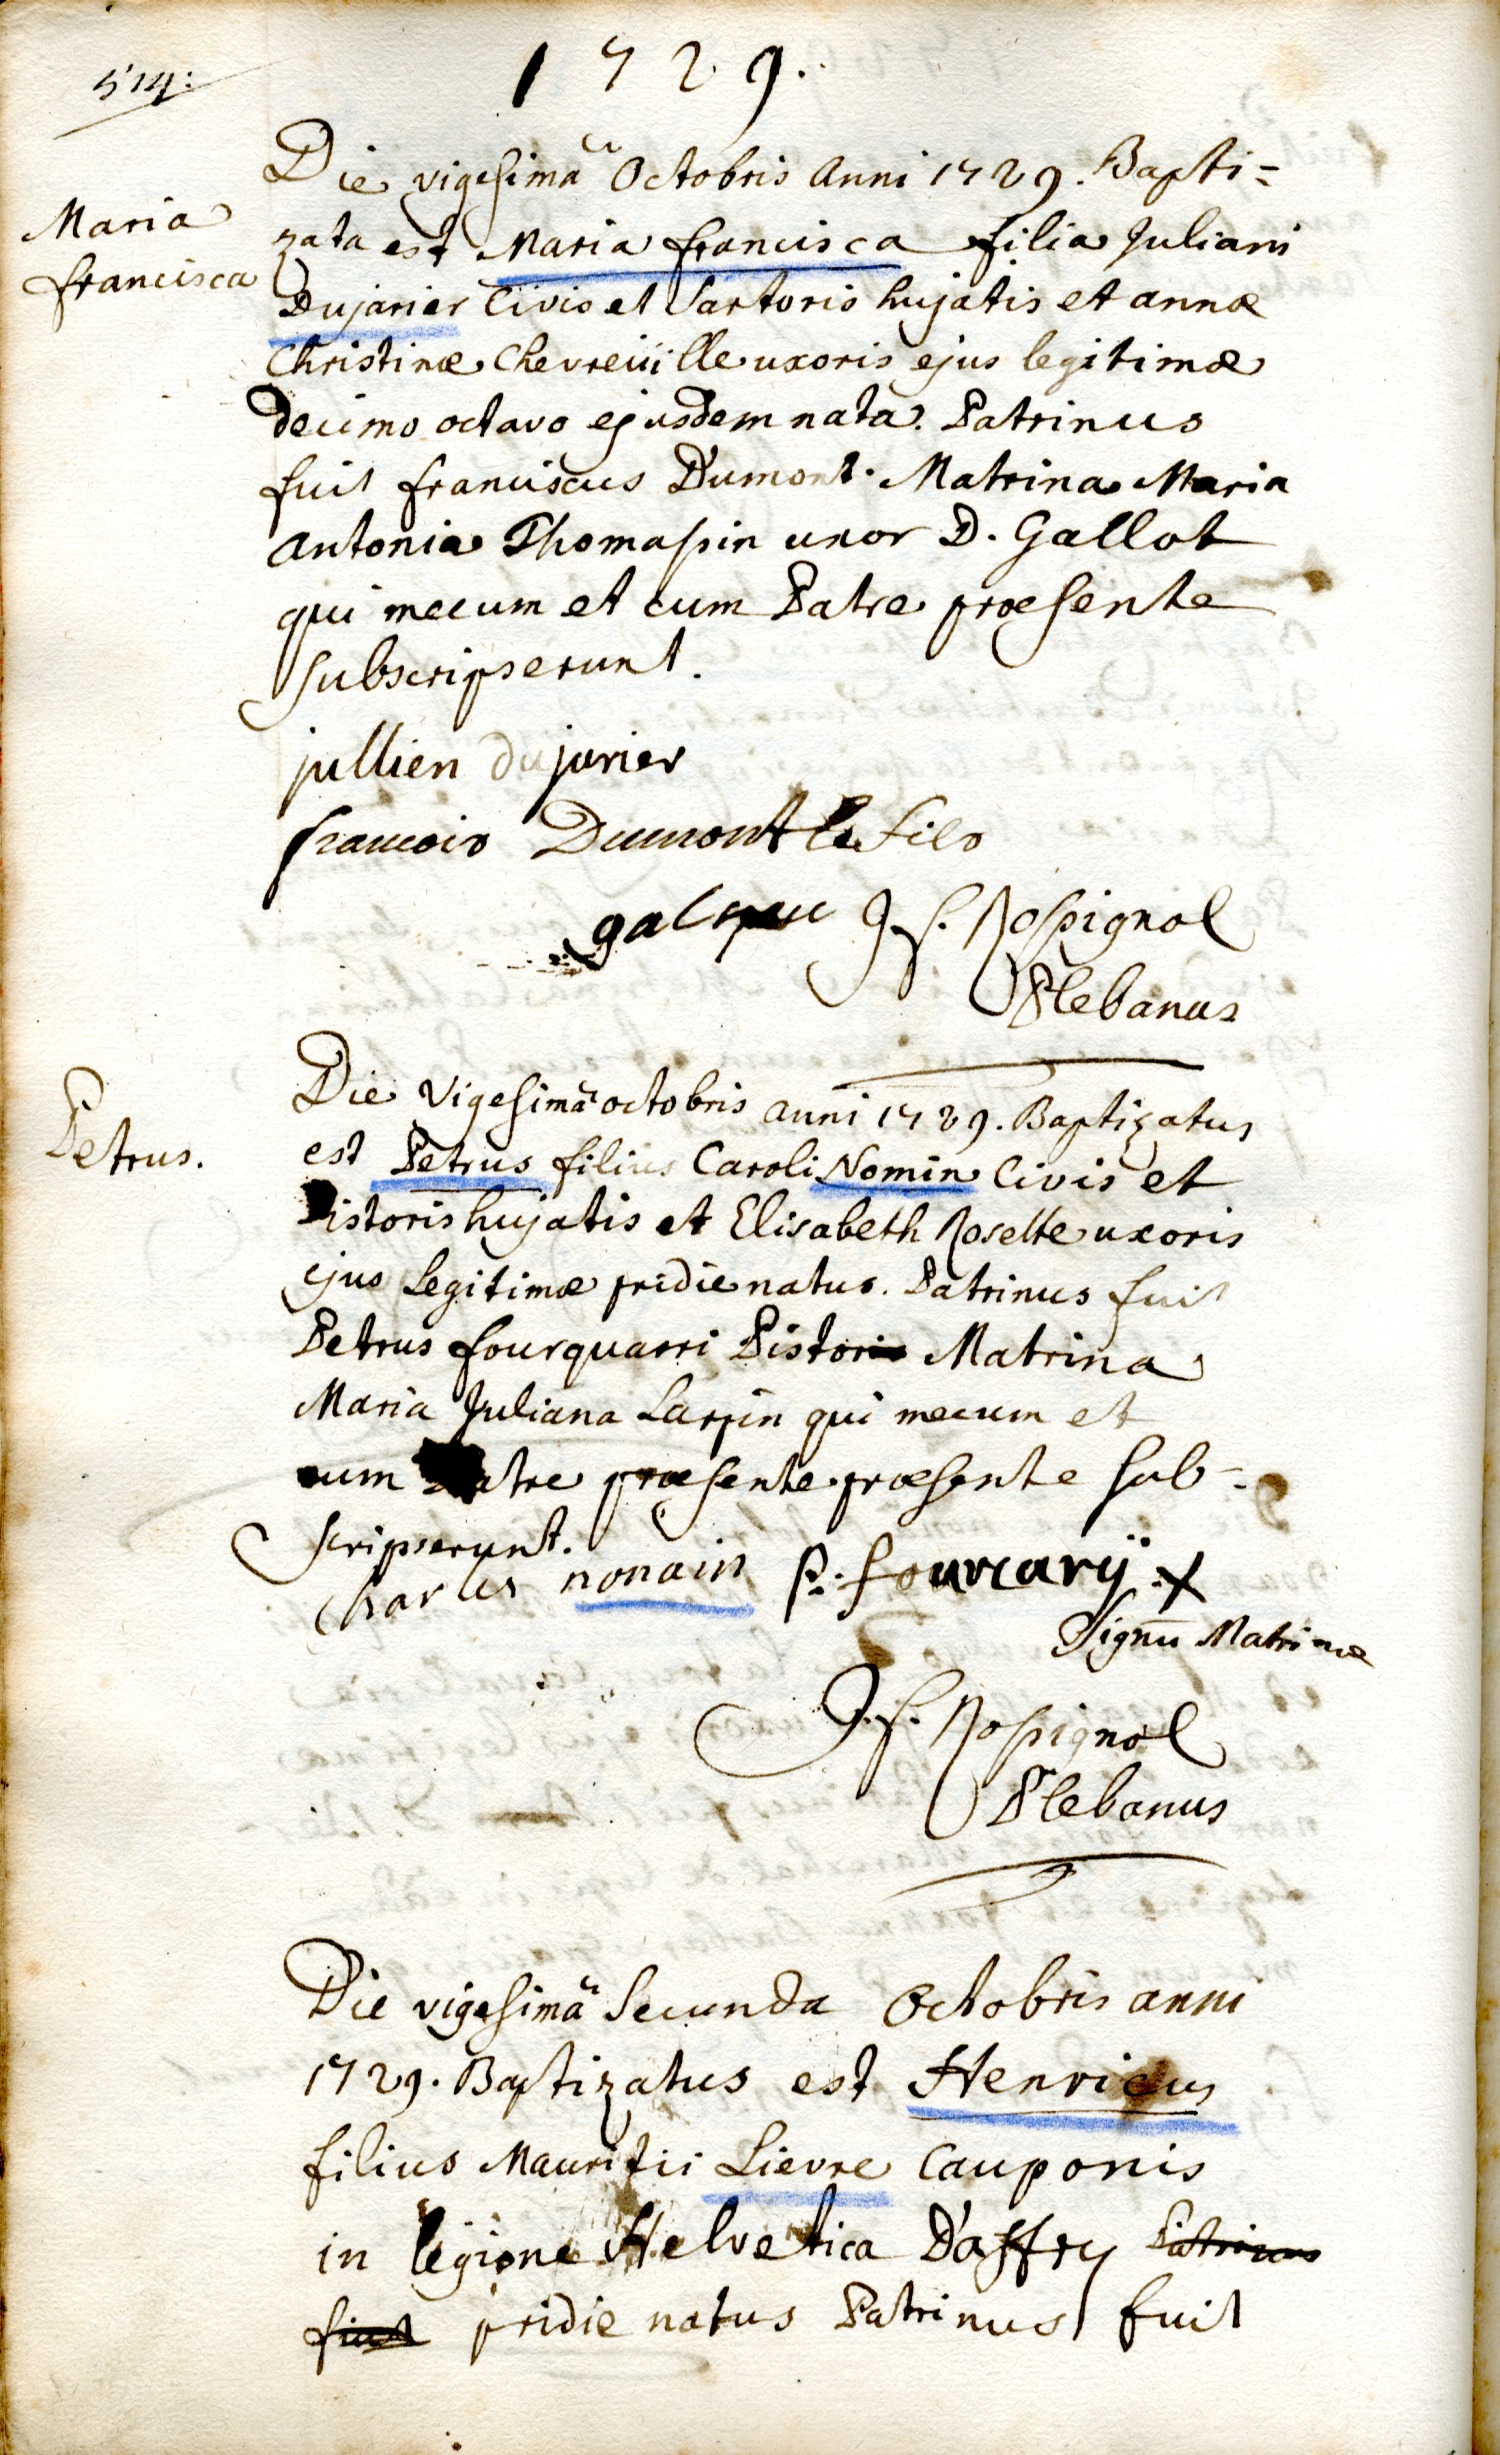 514:
1729.
Die vigesimâ Octobris anni 1729. Bapti=
Maria
Francisca
zata est Maria francisca filia Juliani
Dujarier Civis et Sartoris hujatis et annæ
Christinæ Chevreüille uxoris ejus legitimæ
decimo octavo ejusdem nata. Patrinus
fuit franciscus Dumont. Matrina Maria
antonia Thomassin uxor D. Gallot
qui mecum et cum Patre præsente
subscripserunt.
jullien dujarier
francois Dumont le fils
J. f. Rossignol
Plebanus
Petrus.
Die Vigesimâ octobris anni 1729. Baptizatus
est Petrus filius Caroli Nomin Civis et
Pistoris hujatis et Elisabeth Roselte uxoris
ejus Legitimæ pridie natus. Patrinus fuit
Petrus fourquarri Pistoris Matrina
Maria Juliana Larpin qui mecum et
cum Patre præsente præsente sub-
scripserunt.
charles nonain p. fourcarÿ +
Signū Matrinæ
J. f. Rossignol
Plebanus
Die vigesimâ Secunda Octobris anni
1729. Baptizatus est Henricus
filius Mauritii Lievre Cauponis
in legione Helvetica D'affry Patrinus
fuit pridie natus Patrinus fuit